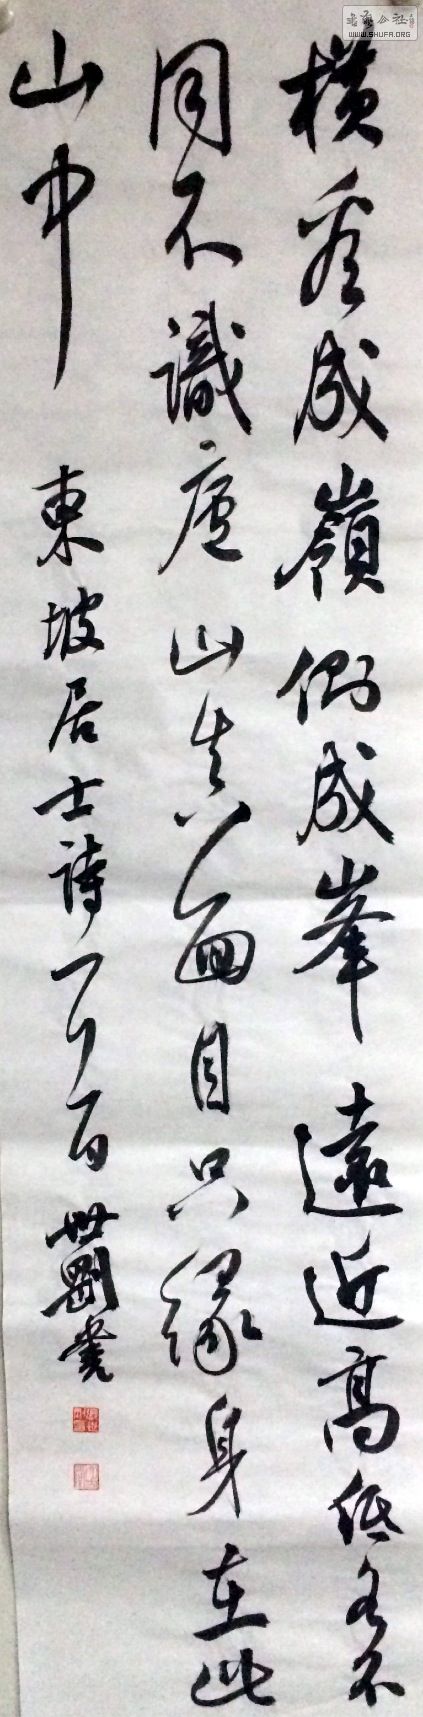 橫看成嶺側成峯遠近高低各不
同不識廬山真面目只緣身在此
山中
東坡居士詩一首 世剛書
WWW.SHUFA.ORG